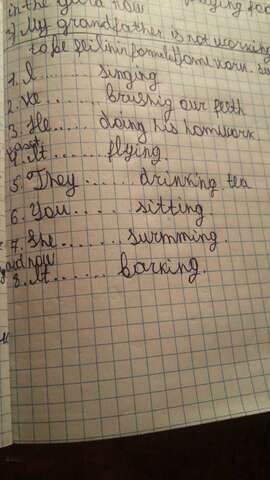 in the yard now
3) My grandfather is not working
to be
1. I...... singing
2. We ...... brushig our teeth
3. He...... doing his homwork.
4. It ...... flying.
5. They ...... drinking tea
6. You ...... sitting.
7. She ...... swmming.
8. It ...... barking.